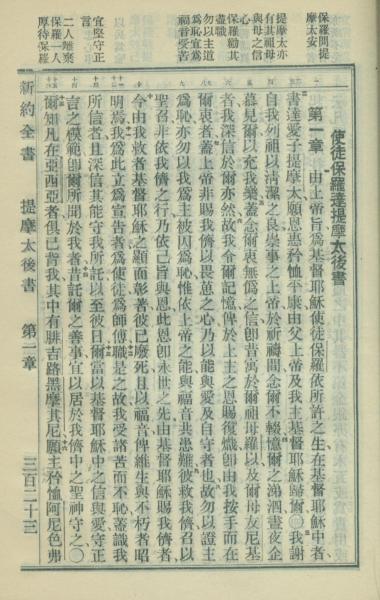 使徒保羅達提摩太後書
第一章 由上帝旨爲基督耶穌使徒保羅依所許之生在基督耶穌中者
書達愛子提摩太願恩惠矜恤平康由父上帝及我主基督耶穌歸爾○我謝
自我列祖以清潔之良崇事之上帝於祈禱間念爾不輟憶爾之涕泗晝夜企
慕見爾以充我樂蓋念爾衷無僞之信卽昔寓於爾祖母羅以及爾母友尼基
者我深信於爾亦然故我令爾記憶俾於上主之恩賜復熾卽由我按手而在
爾衷者蓋上帝非賜我儕以畏葸之心乃以能與愛及自守者也故勿以證主
爲恥亦勿以我爲主被囚爲恥惟依上帝之能與福音共患難彼救我儕召以
聖召非依我儕之行乃依己旨與恩此恩卽永世之先由基督耶穌賜我儕者
今由我救者基督耶穌之顯而彰著彼已廢死且以福音俾維生與不朽者昭
明焉我爲此立爲宣告者爲使徒爲師傅職是之故我受諸苦而不恥蓋識我
所信者且深信其能守我所託以至彼日爾當以基督耶穌中之信與愛守正
言之模範卽爾所聞於我者昔託爾之善事宜以居於我儕中之聖神守之○
爾知凡在亞西亞者俱已背我其中有腓吉路黑摩其尼願主矜恤阿尼色弗
保羅問提
摩太安
提摩太亦
有其祖母
與母之信
心
保羅勸其
盡職
勿以主道
爲恥宜爲
福音受苦
宜堅守正
言
二人離棄
保羅一人
厚待保羅
新約全書 提摩太後書 第二章 三百二十三